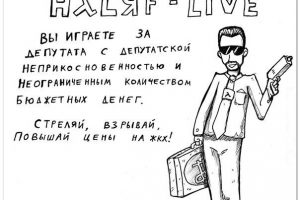 HλLЯF - LIVE
Вы играете за
депутата с депутатской
неприкосновенностью и
неограниченным количеством
бюджетных денег.
Стреляй, взрывай,
повышай цены на ЖКХ!